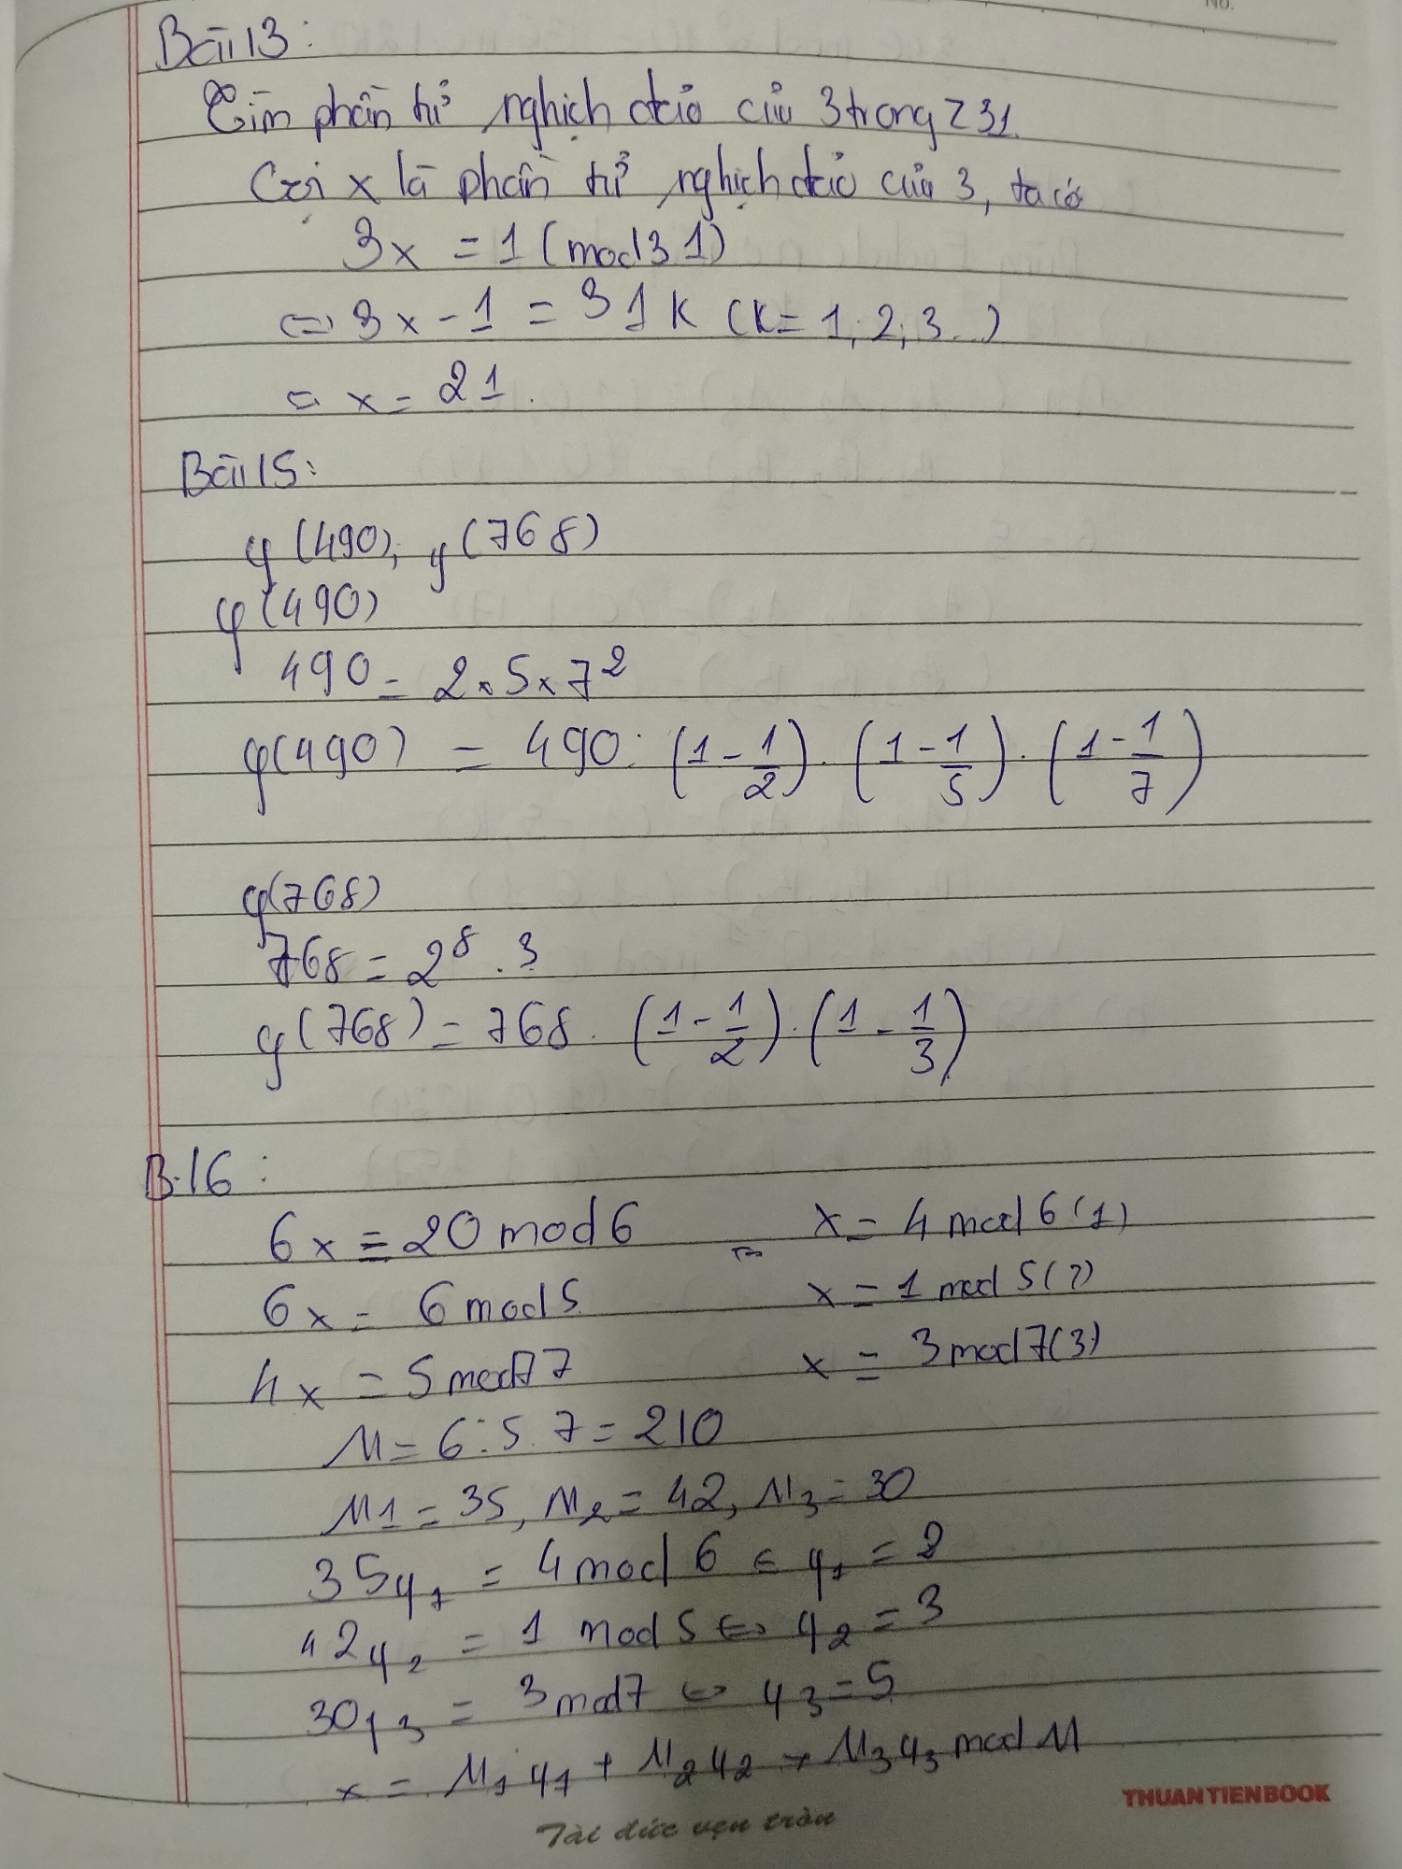 No.
Bài 13:
Tìm phần tử nghịch đảo của 3 trong Z 31.
Gọi x là phần tử nghịch đảo của 3, ta có
3x = 1 (mod 31)
⇔ 3x - 1 = 31k (k = 1, 2, 3...)
= x = 21.
Bài 15:
φ(490), φ(768)
φ(490)
490 = 2 × 5 × 7²
φ(490) = 490 . (1 - 1/2) . (1 - 1/5) . (1 - 1/7)
φ(768)
768 = 2⁸ . 3
φ(768) = 768 . (1 - 1/2) . (1 - 1/3)
B.16:
6x ≡ 20 mod 6 ⇔ x = 4 mod 6 (1)
6x = 6 mod 5 x = 1 mod 5 (2)
4x = 5 mod 7 x = 3 mod 7 (3)
M = 6 . 5 . 7 = 210
M1 = 35, M₂ = 42, M₃ = 30
35y₁ = 4 mod 6 ⇔ y₁ = 2
42y₂ = 1 mod 5 ⇔ y₂ = 3
30y₃ = 3 mod 7 ⇔ y₃ = 5
x = M₁y₁ + M₂y₂ + M₃y₃ mod M
THUANTIENBOOK
Tài đức vẹn tròn